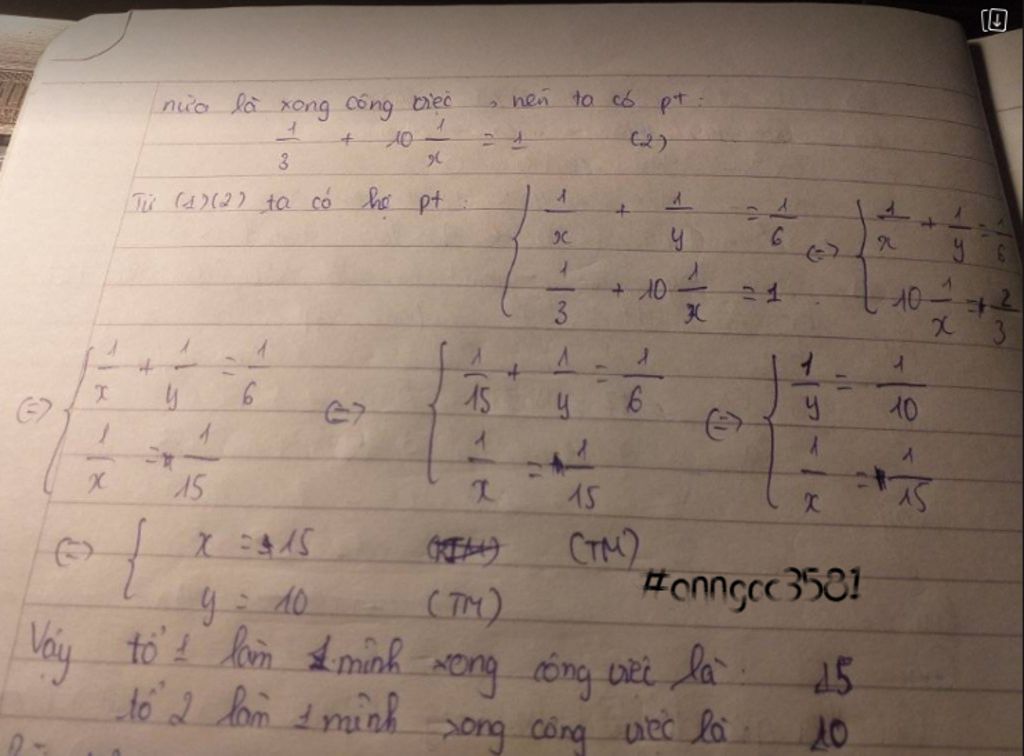 nữa là xong công việc, nên ta có pt:
1/3 + 10 1/x = 1 (2)
Từ (1)(2) ta có hệ pt: { 1/x + 1/y = 1/6 ; 1/3 + 10 1/x = 1 <=> { 1/x + 1/y = 1/6 ; 10 1/x = 2/3
<=> { 1/x + 1/y = 1/6 ; 1/x = 1/15 <=> { 1/15 + 1/y = 1/6 ; 1/x = 1/15 <=> { 1/y = 1/10 ; 1/x = 1/15
<=> { x = 15 (TM)
y = 10 (TM)
#anngcc3581
Vậy tổ 1 làm 1 mình xong công việc là: 15
tổ 2 làm 1 mình xong công việc là: 10